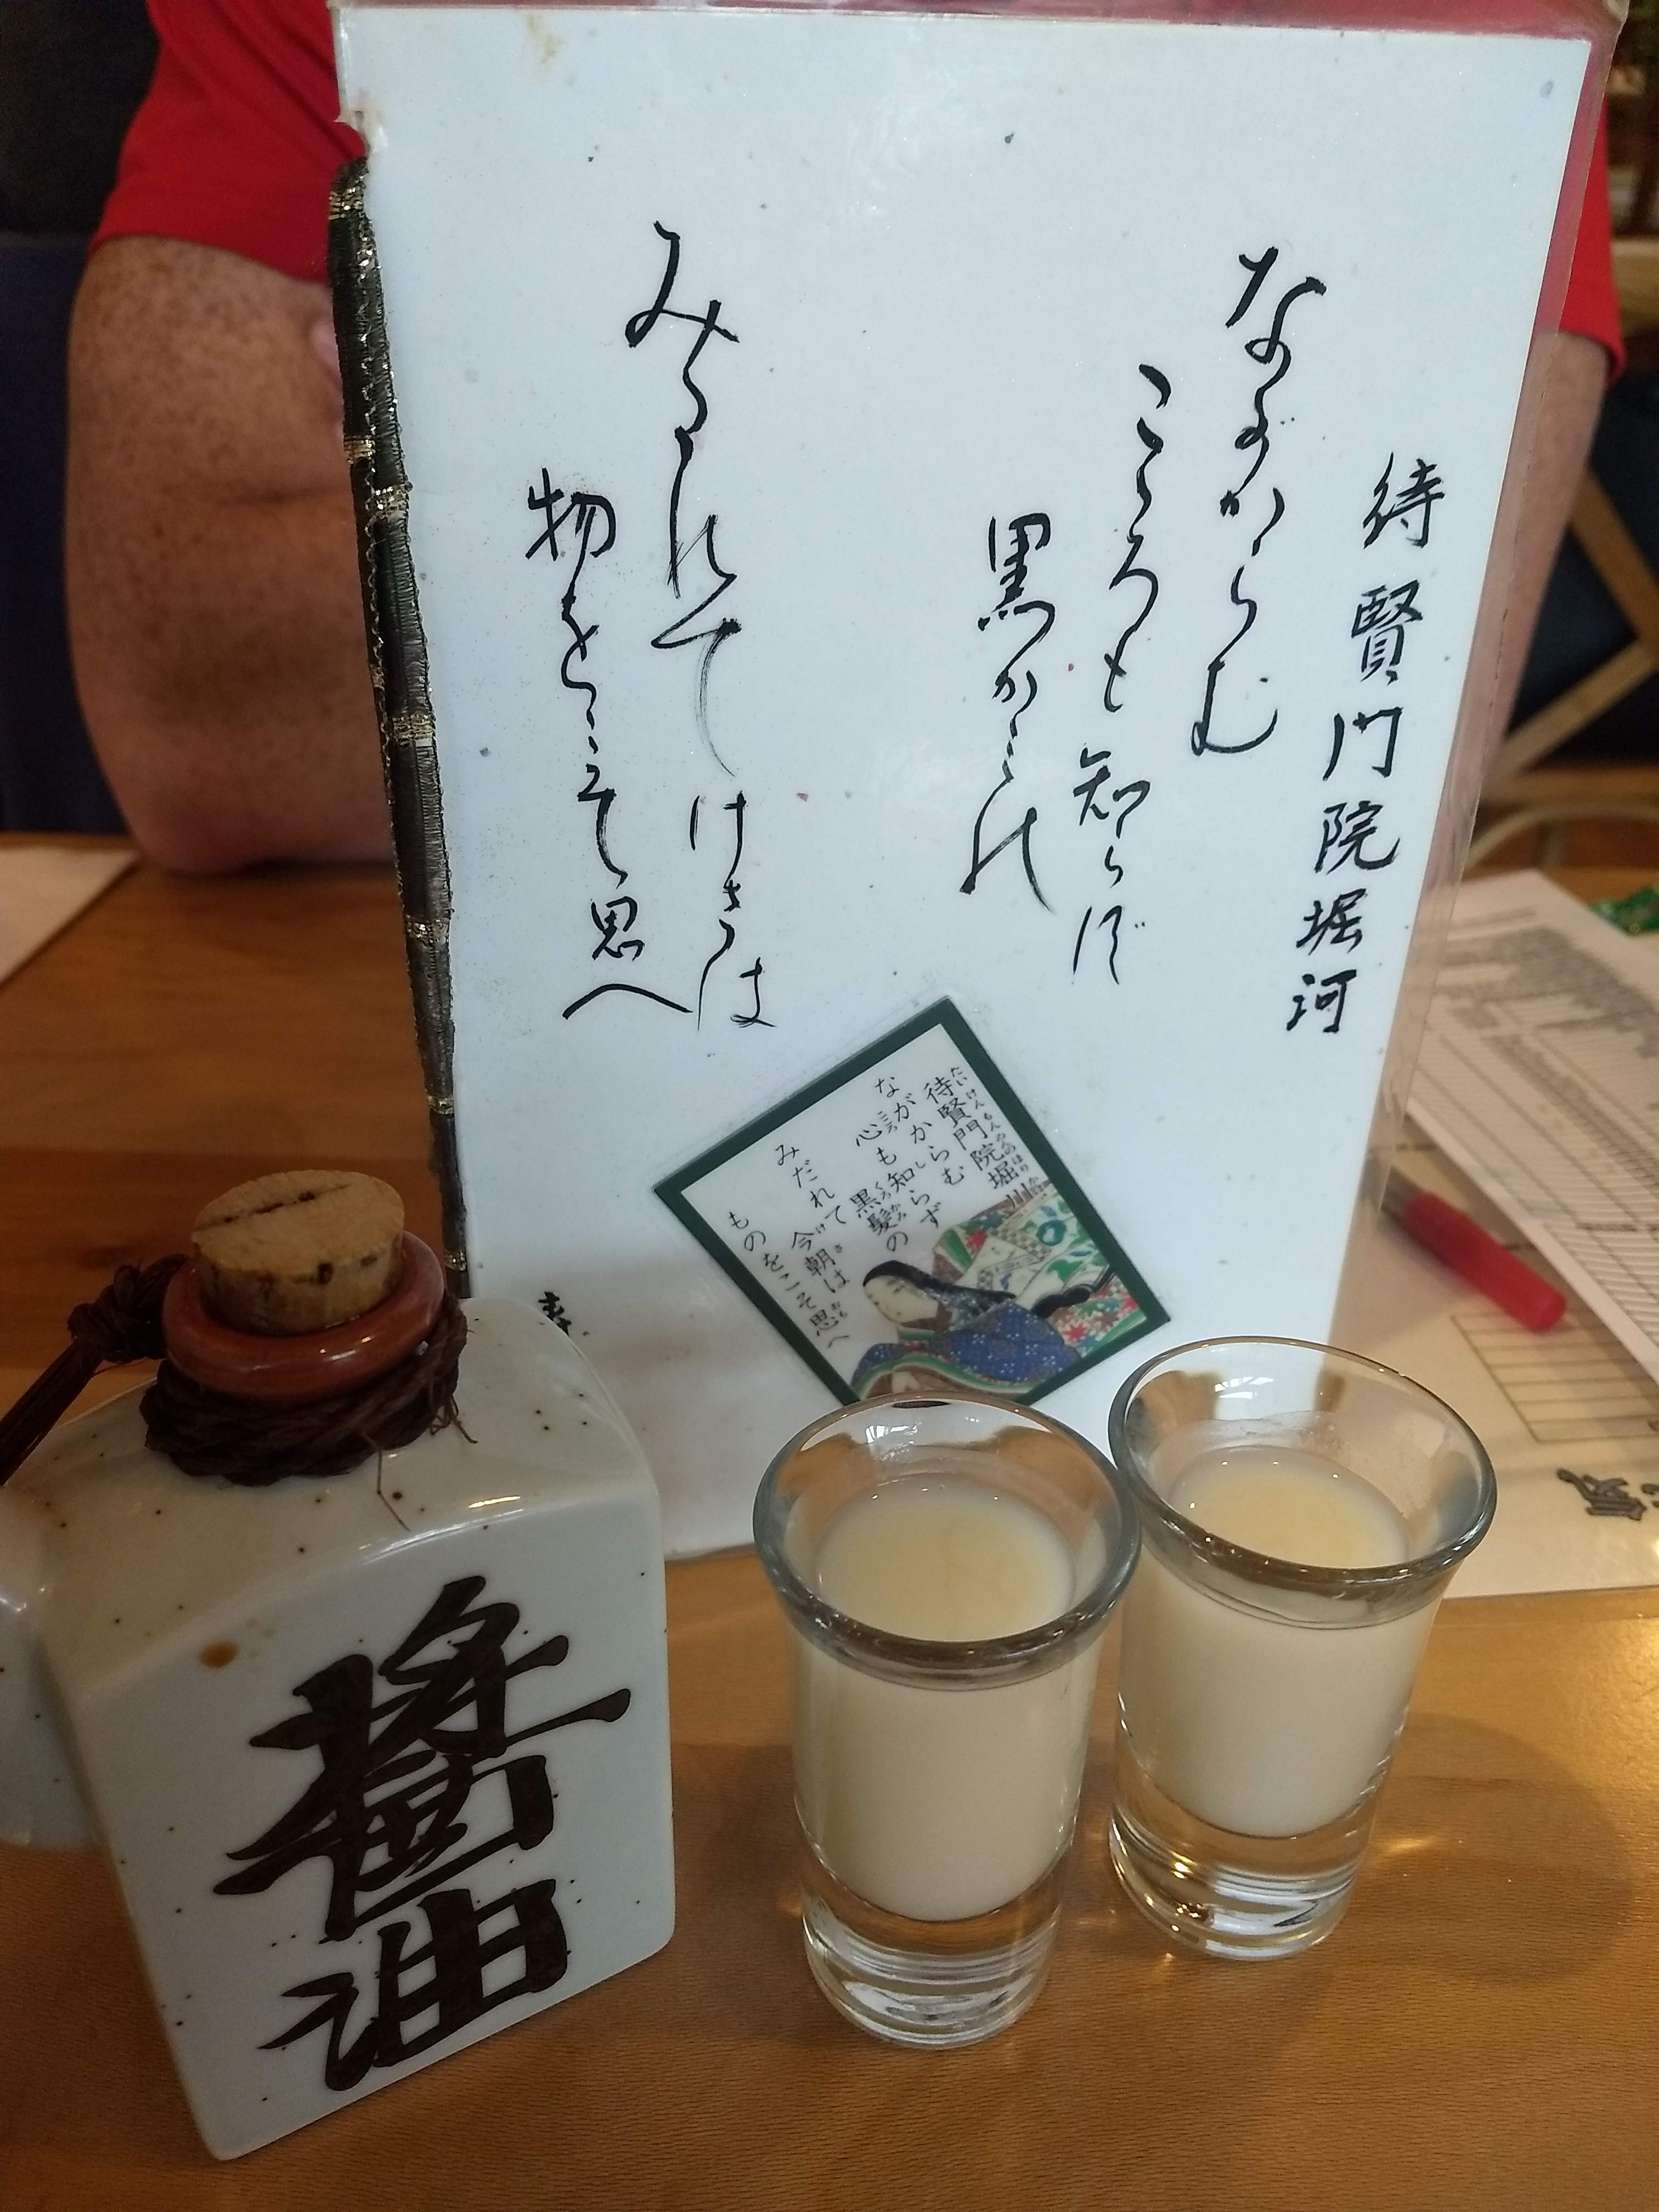 待賢門院堀河
ながからむ
こゝろも知らず
黒かみの
みだれてけさは
物をこそ思へ
待賢門院堀
たいけんもんゐんのほり
ながからむ
心も知らず
黒髪の
みだれて今朝は
ものをこそ思へ
醤油